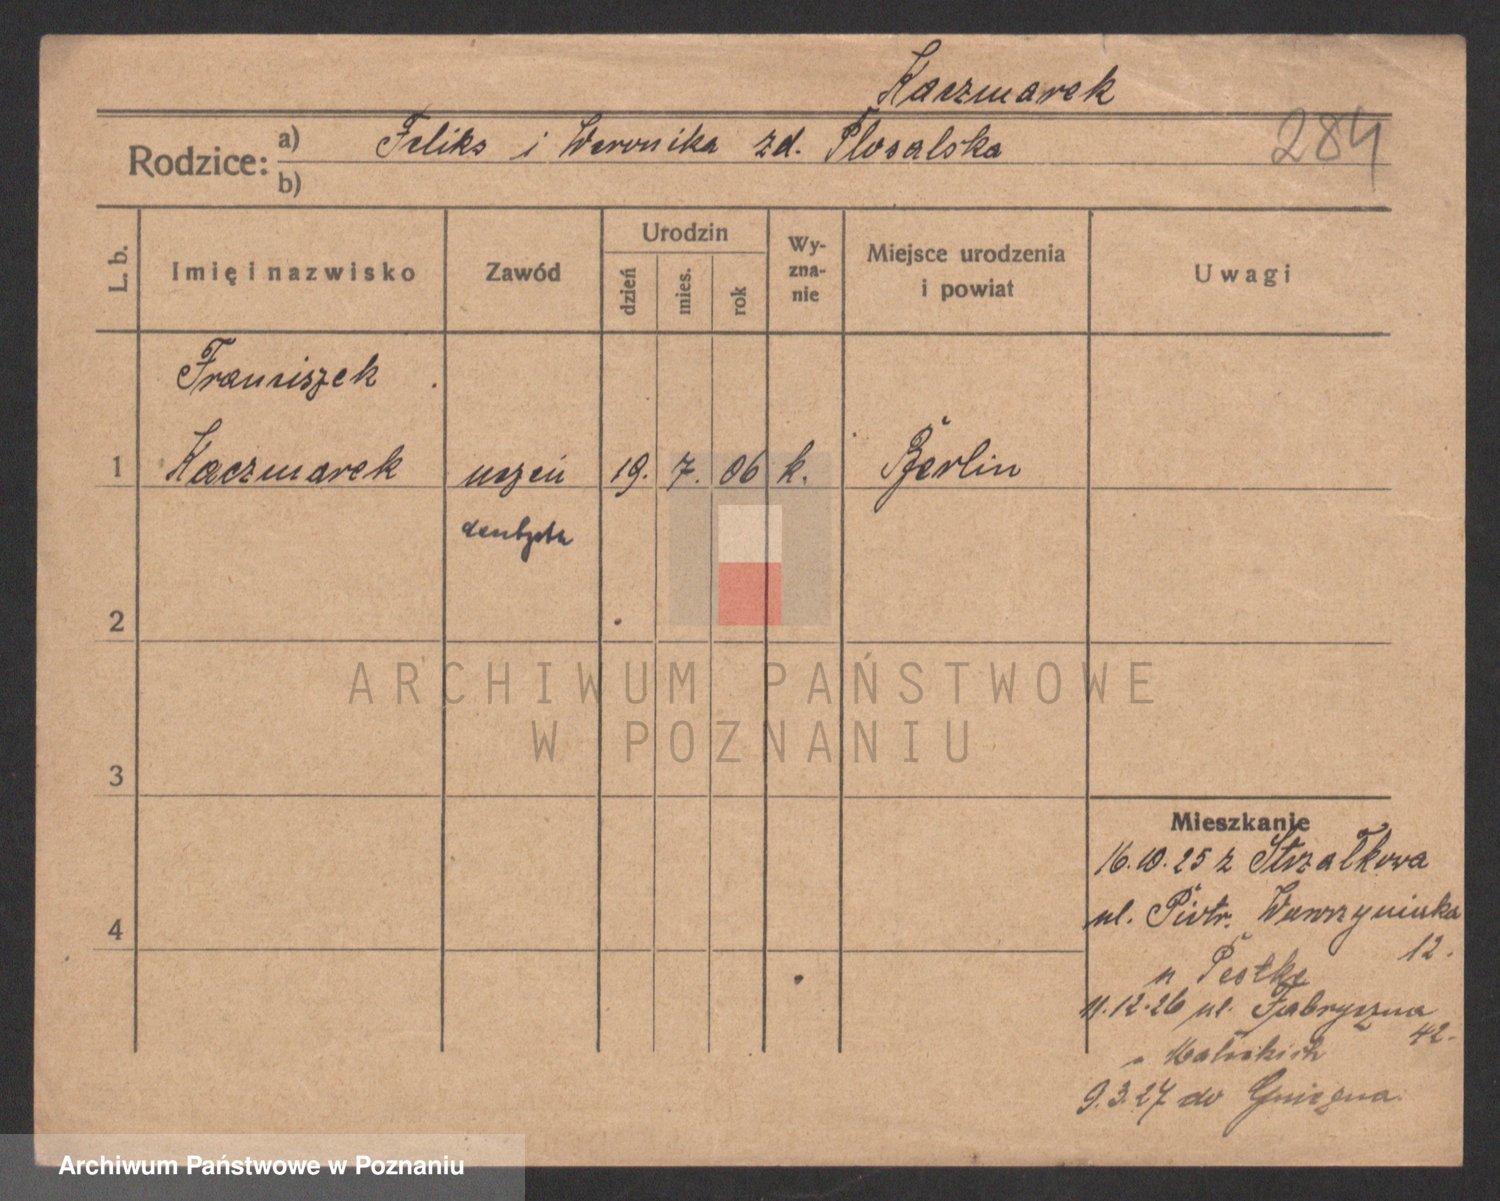 Kaczmarek
284
Rodzice: a) Feliks i Weronika zd. Plosalska
b)
L. b. Imię i nazwisko Zawód Urodzin dzień mies. rok Wy-zna-nie Miejsce urodzenia i powiat Uwagi
Franciszek
1 Kaczmarek uczeń 19. 7. 06 k. Berlin
dentysta
2
ARCHIWUM PAŃSTWOWE
W POZNANIU
3
4
Mieszkanie
16.10.25 z Strzałkowa
ul. Piotr. Wawrzyniaka
12.
u Pestkę
11.12.26 ul. Fabryczna
42.
9.3.27 do Gniezna.
Archiwum Państwowe w Poznaniu